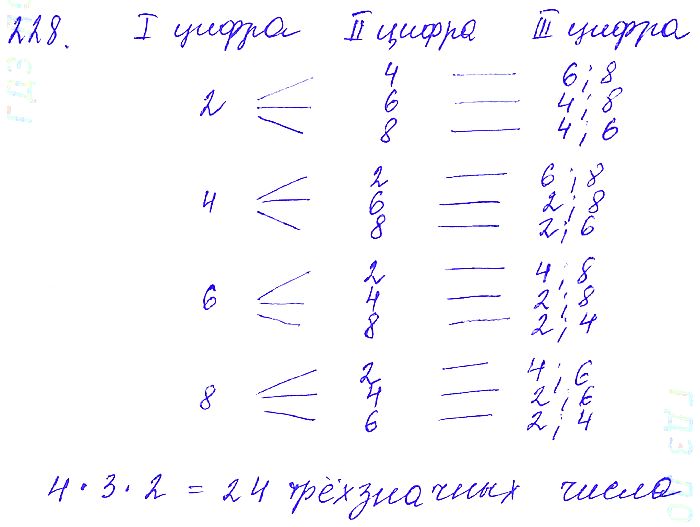 228. I цифра II цифра III цифра
4 — 6; 8
2 6 — 4; 8
8 — 4; 6
2 — 6; 8
4 6 — 2; 8
8 — 2; 6
2 — 4; 8
6 4 — 2; 8
8 — 2; 4
2 — 4; 6
8 4 — 2; 6
6 — 2; 4
4 · 3 · 2 = 24 трёхзначных числа